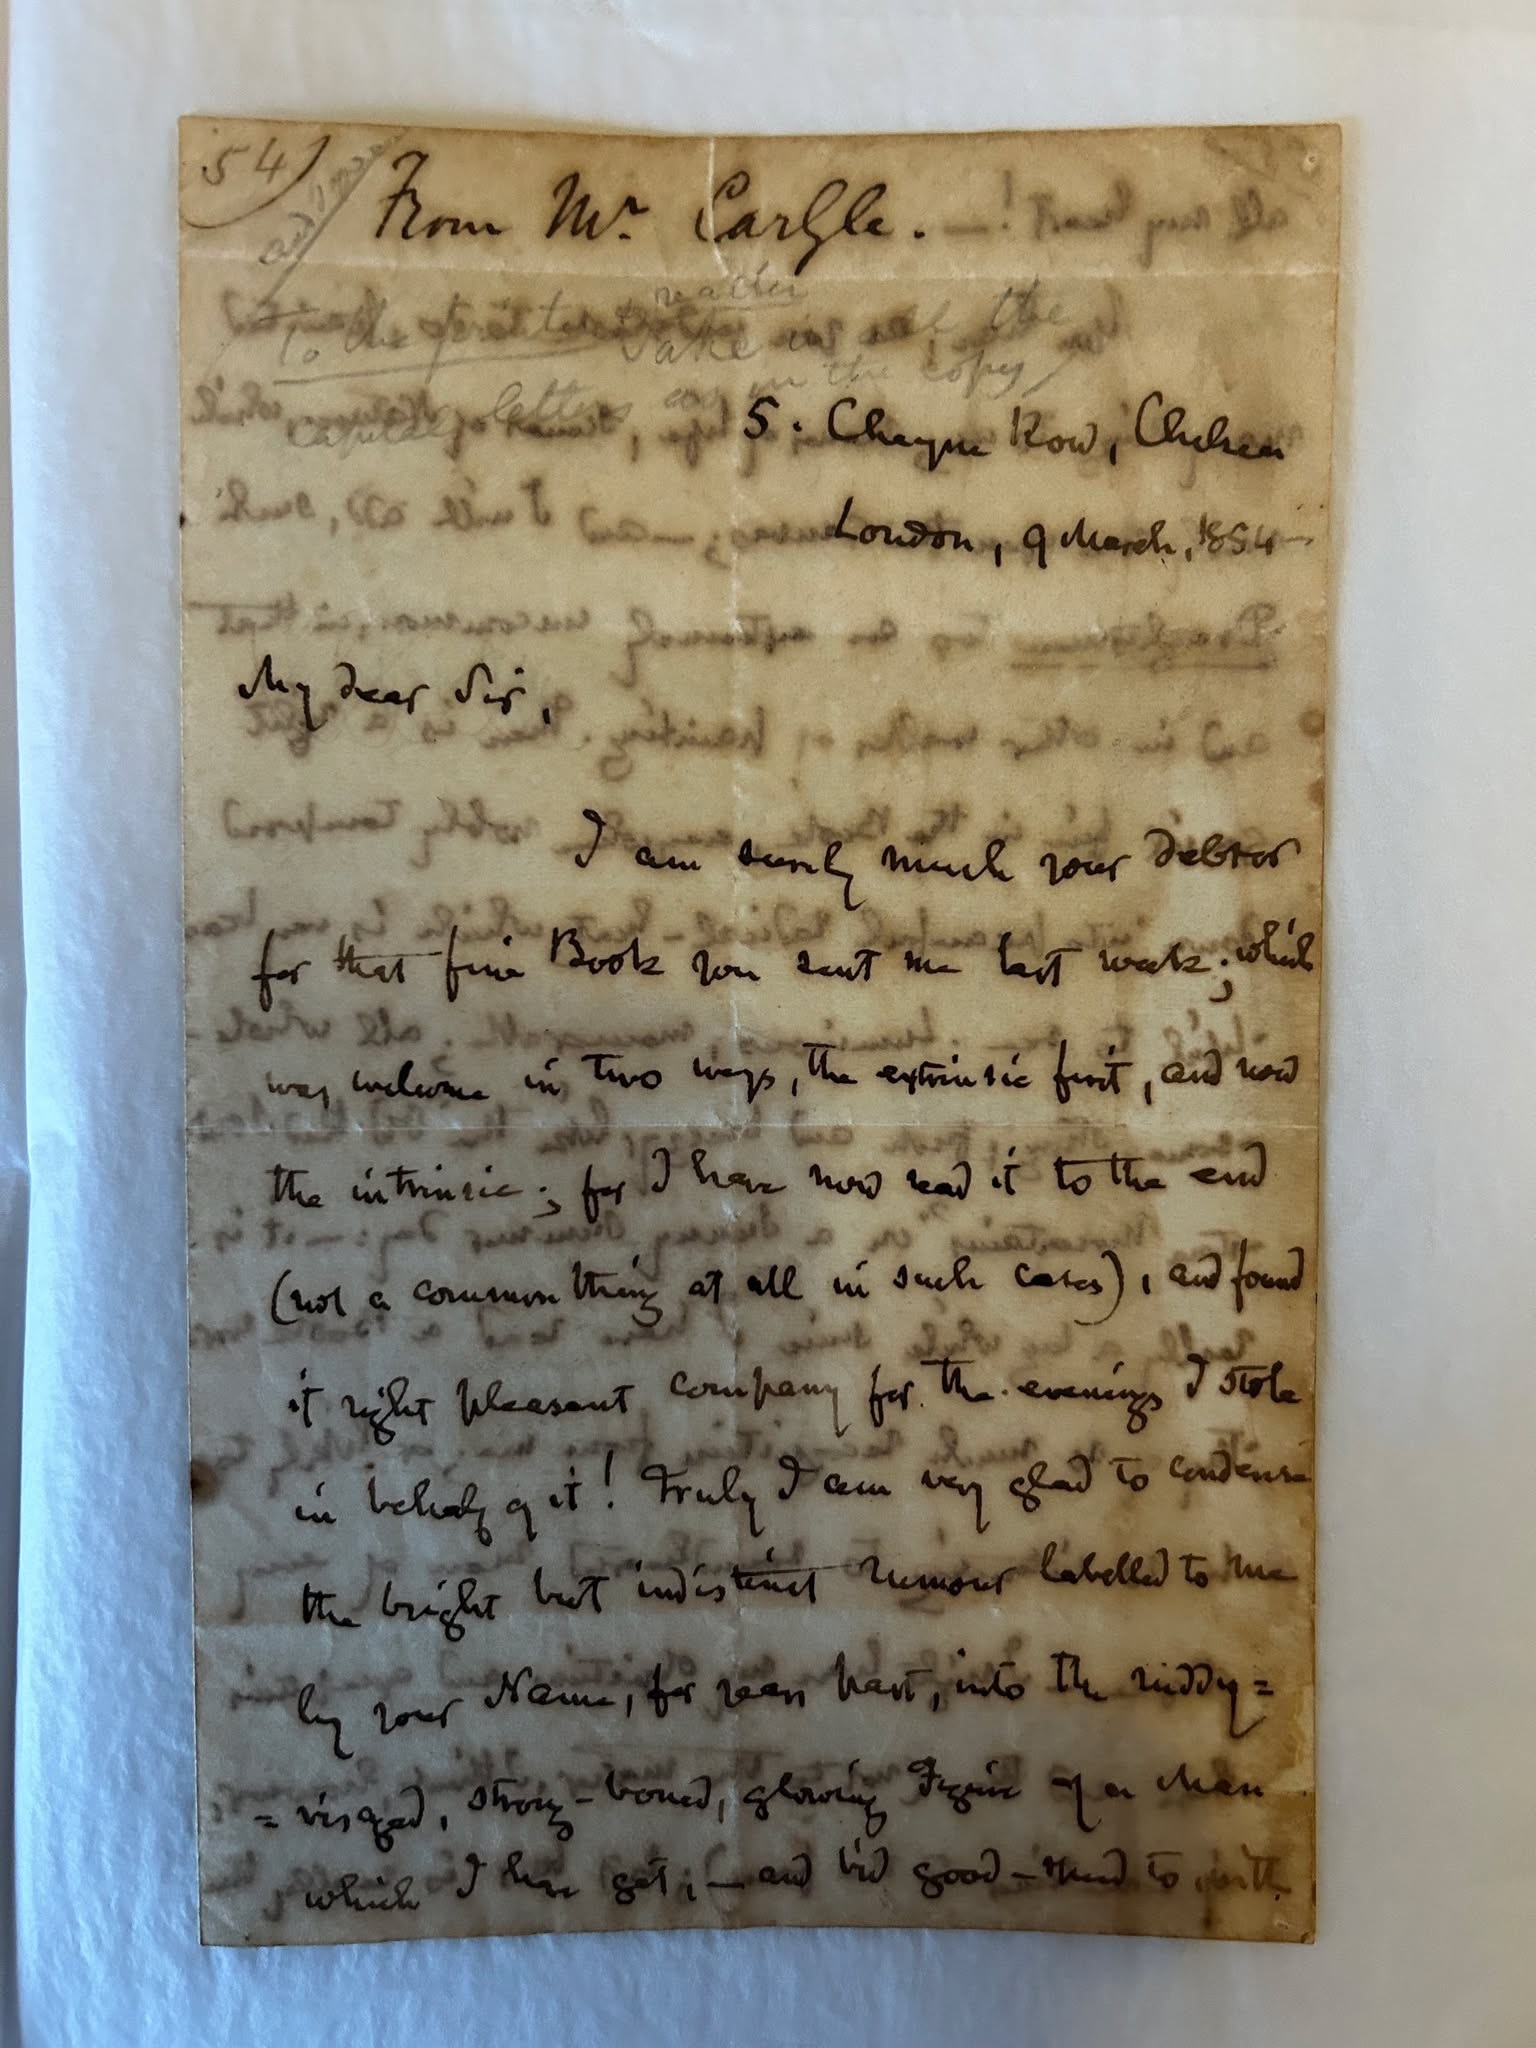 54)
From Mr. Carlyle.
To the printer reader
Take in all the
capital letters as in the copy
5. Cheyne Row, Chelsea
London, 9 March, 1854—
My dear Sir,
I am surely much your debtor
for that fine Book you sent me last week; which
was welcome in two ways, the extrinsic first, and now
the intrinsic; for I have now read it to the end
(not a common thing at all in such cases), and found
it right pleasant company for the evenings I stole
in behalf of it! Truly I am very glad to condense
the bright but indistinct rumour labelled to me
by your Name, for years past, into the ruddy=
=visaged, strong-boned, glowing Figure of a Man
which I have got;—and bid good-speed to, with